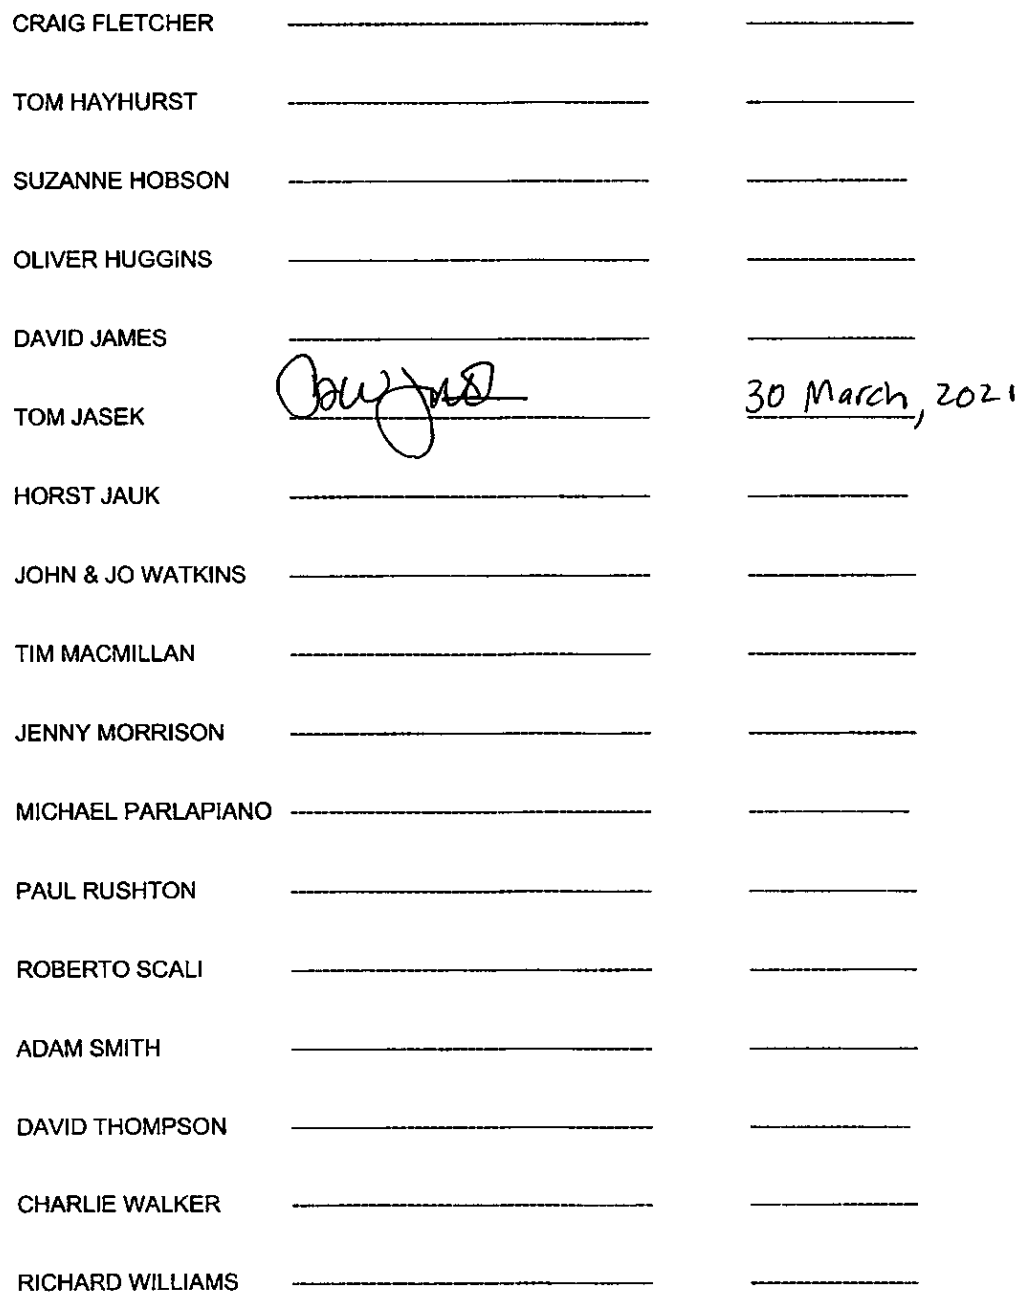 CRAIG FLETCHER
TOM HAYHURST
SUZANNE HOBSON
OLIVER HUGGINS
DAVID JAMES
TOM JASEK 30 March, 2021
HORST JAUK
JOHN & JO WATKINS
TIM MACMILLAN
JENNY MORRISON
MICHAEL PARLAPIANO
PAUL RUSHTON
ROBERTO SCALI
ADAM SMITH
DAVID THOMPSON
CHARLIE WALKER
RICHARD WILLIAMS